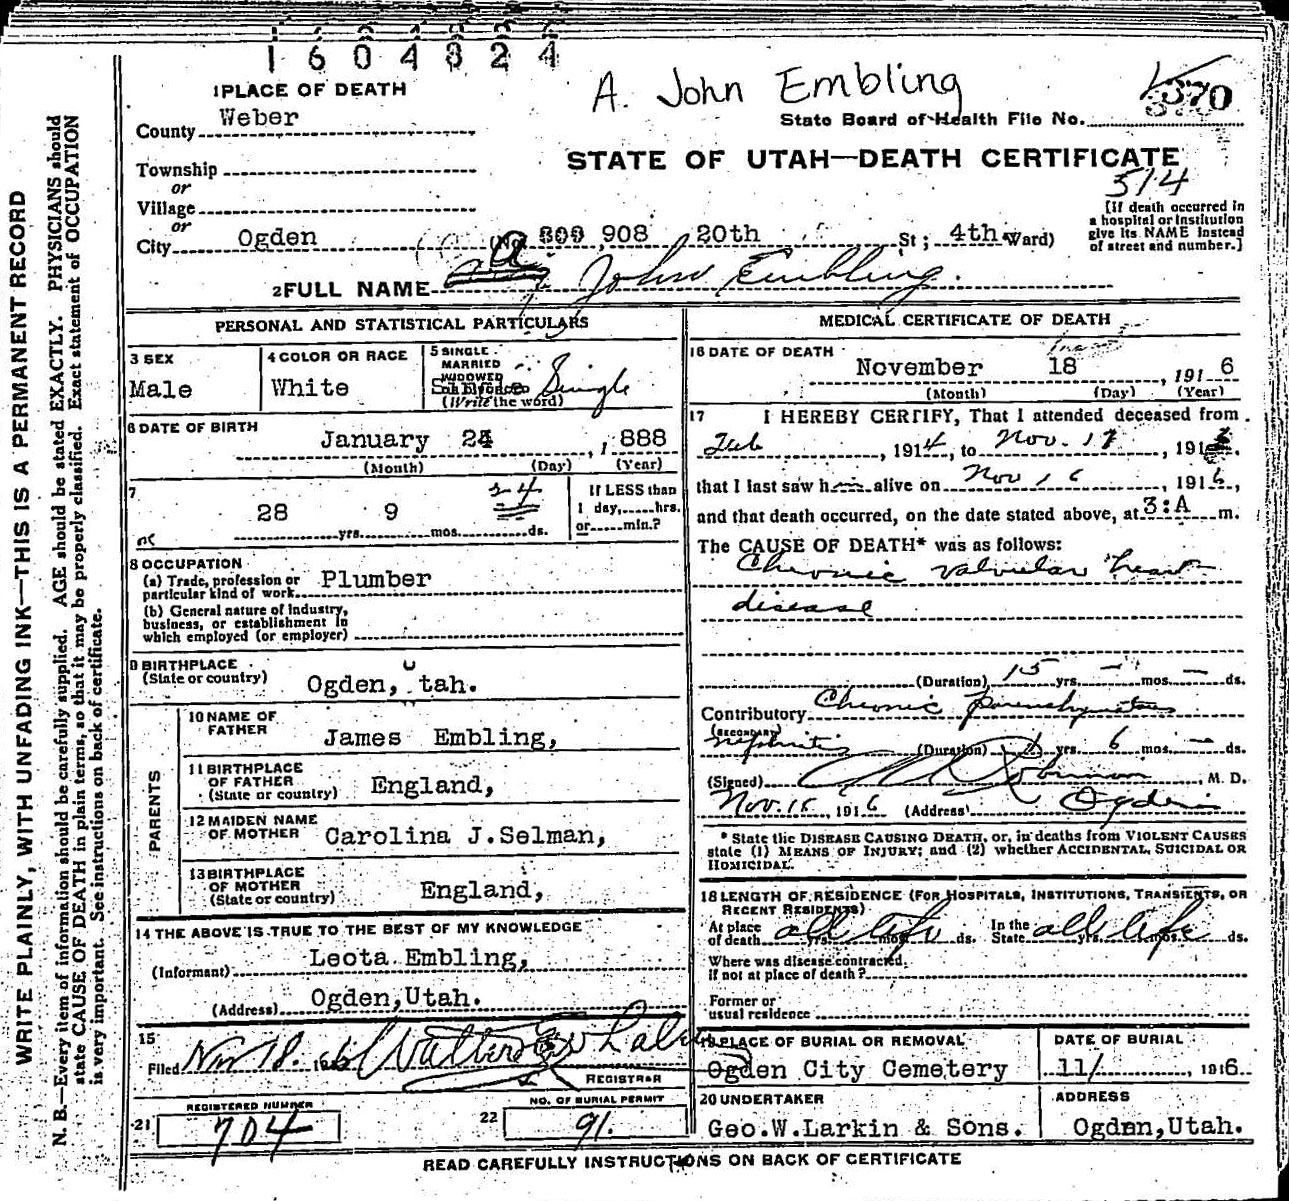 1604824
A. John Embling
370
1 PLACE OF DEATH
County Weber
State Board of Health File No.
STATE OF UTAH—DEATH CERTIFICATE
514
Township
or
Village
or
City Ogden (No. 908 20th St; 4th Ward)
[If death occurred in
a hospital or institution
give its NAME instead
of street and number.]
2 FULL NAME A John Embling.
PERSONAL AND STATISTICAL PARTICULARS
3 SEX
Male
4 COLOR OR RACE
White
5 SINGLE
MARRIED
WIDOWED
OR DIVORCED
(Write the word)
Single
6 DATE OF BIRTH
January 24, 1888
(Month) (Day) (Year)
7
28 yrs. 9 mos. 24 ds.
If LESS than
1 day,......hrs.
or......min.?
8 OCCUPATION
(a) Trade, profession or
particular kind of work Plumber
(b) General nature of industry,
business, or establishment in
which employed (or employer)
9 BIRTHPLACE
(State or country) Ogden, Utah.
PARENTS
10 NAME OF
FATHER James Embling,
11 BIRTHPLACE
OF FATHER
(State or country) England,
12 MAIDEN NAME
OF MOTHER Carolina J.Selman,
13 BIRTHPLACE
OF MOTHER
(State or country) England,
14 THE ABOVE IS TRUE TO THE BEST OF MY KNOWLEDGE
(Informant) Leota Embling,
(Address) Ogden,Utah.
15
Filed Nov 18. 1916 Walter
REGISTRAR
REGISTERED NUMBER
21 704
NO. OF BURIAL PERMIT
22 91.
MEDICAL CERTIFICATE OF DEATH
16 DATE OF DEATH
November 18, 1916
(Month) (Day) (Year)
17 I HEREBY CERTIFY, That I attended deceased from
Feb, 1914, to Nov. 17, 191
that I last saw h alive on Nov 16, 1916,
and that death occurred, on the date stated above, at 3:A m.
The CAUSE OF DEATH* was as follows:
Chronic valvular heart
disease
(Duration) 15 yrs. — mos. — ds.
Contributory Chronic parenchymatous
(SECONDARY)
nephritis (Duration) yrs. 6 mos. — ds.
(Signed) Robinson, M. D.
Nov. 18, 1916 (Address) Ogden
* State the DISEASE CAUSING DEATH, or, in deaths from VIOLENT CAUSES
state (1) MEANS OF INJURY; and (2) whether ACCIDENTAL, SUICIDAL OR
HOMICIDAL.
18 LENGTH OF RESIDENCE (FOR HOSPITALS, INSTITUTIONS, TRANSIENTS, OR
RECENT RESIDENTS)
At place
of death all life yrs. mos. ds.
In the
State all life yrs. mos. ds.
Where was disease contracted,
if not at place of death?
Former or
usual residence
19 PLACE OF BURIAL OR REMOVAL
Ogden City Cemetery
DATE OF BURIAL
11/ , 1916.
20 UNDERTAKER
Geo.W.Larkin & Sons.
ADDRESS
Ogden,Utah.
READ CAREFULLY INSTRUCTIONS ON BACK OF CERTIFICATE
WRITE PLAINLY, WITH UNFADING INK—THIS IS A PERMANENT RECORD
N. B.—Every item of information should be carefully supplied. AGE should be stated EXACTLY. PHYSICIANS should
state CAUSE OF DEATH in plain terms, so that it may be properly classified. Exact statement of OCCUPATION
is very important. See instructions on back of certificate.